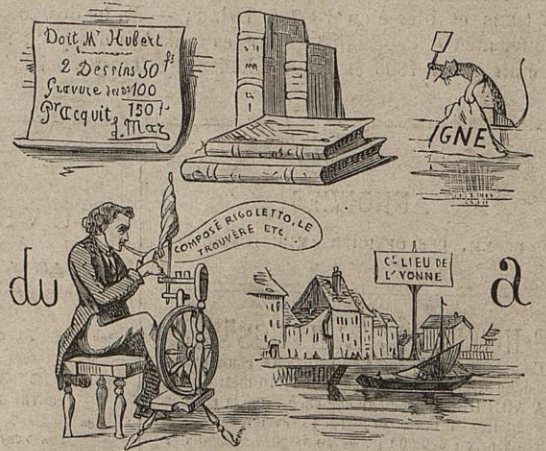 Doit Mr Hubert
2 Dessins 50 fs
Gravure des do 100
Pr acquit 150 f
IGNE
du
COMPOSÉ RIGOLETTO, LE
TROUVÈRE ETC.
Ct LIEU DE
L'YONNE
a